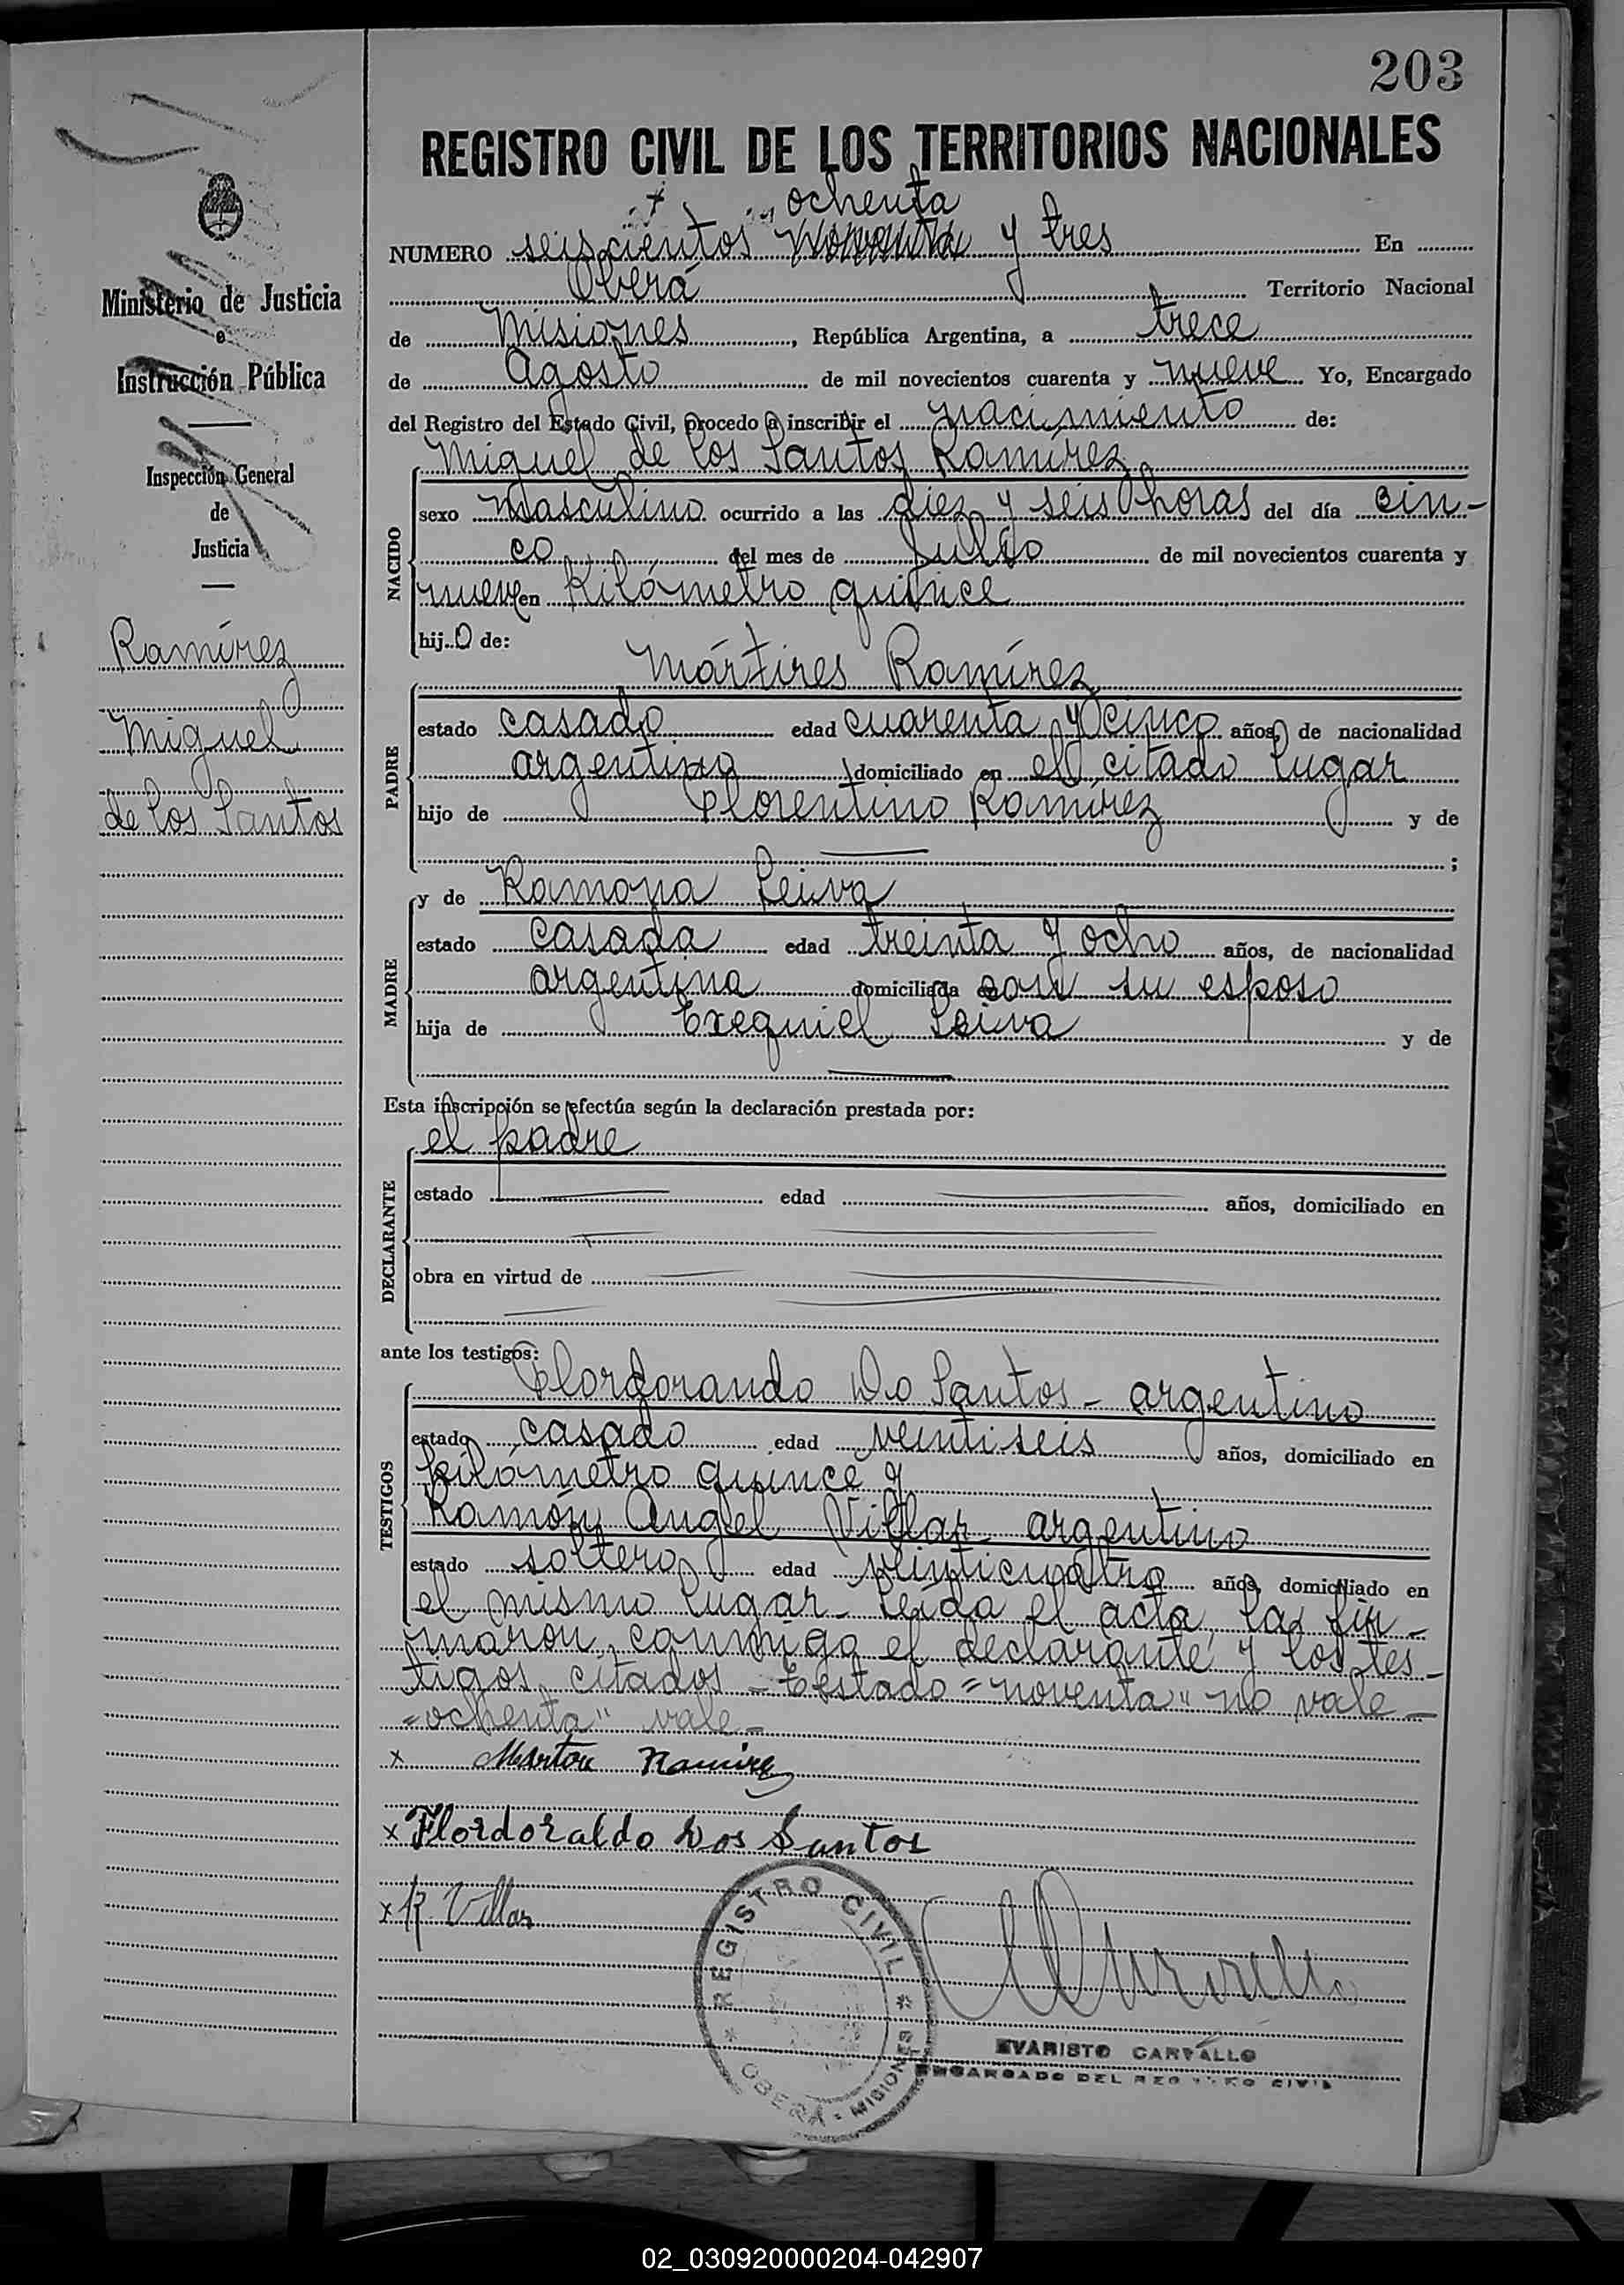 203
REGISTRO CIVIL DE LOS TERRITORIOS NACIONALES
ochenta
NUMERO seiscientos noventa y tres En
Oberá Territorio Nacional
de Misiones, República Argentina, a trece
de Agosto de mil novecientos cuarenta y nueve Yo, Encargado
del Registro del Estado Civil, procedo a inscribir el nacimiento de:
Miguel de los Santos Ramírez
NACIDO
sexo masculino ocurrido a las diez y seis horas del día cin-
co del mes de Julio de mil novecientos cuarenta y
nueve en Kilómetro quince
hijo de:
Mártires Ramírez
PADRE
estado casado edad cuarenta y cinco años, de nacionalidad
argentino domiciliado en el citado lugar
hijo de Florentino Ramírez y de
;
y de Ramona Leiva
MADRE
estado casada edad treinta y ocho años, de nacionalidad
argentina domiciliada con su esposo
hija de Exequiel Leiva y de
Esta inscripción se efectúa según la declaración prestada por:
el padre
DECLARANTE
estado edad años, domiciliado en
obra en virtud de
ante los testigos:
Flordorando Do Santos - argentino
TESTIGOS
estado casado edad veintiseis años, domiciliado en
kilómetro quince y
Ramón Angel Villar argentino
estado soltero edad veinticuatro años, domiciliado en
el mismo lugar - Leída el acta, la fir-
maron conmigo el declarante y los tes-
tigos citados - Testado = noventa" no vale -
=ochenta" vale -
x Ramirez
x Flordoraldo Dos Santos
x R. Villar
REGISTRO CIVIL
* OBERA - MISIONES *
EVARISTO CARVALLO
ENCARGADO DEL REGISTRO CIVIL
Ministerio de Justicia
e
Instrucción Pública
Inspección General
de
Justicia
Ramírez
Miguel
de los Santos
02_030920000204-042907